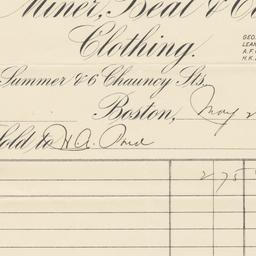 Miner, Beal & Co
Clothing.
GEO.
LEAN
A. F.
H. K.
Summer & 6 Chauncy Sts.
Boston, May 2
Sold to H. A.
275